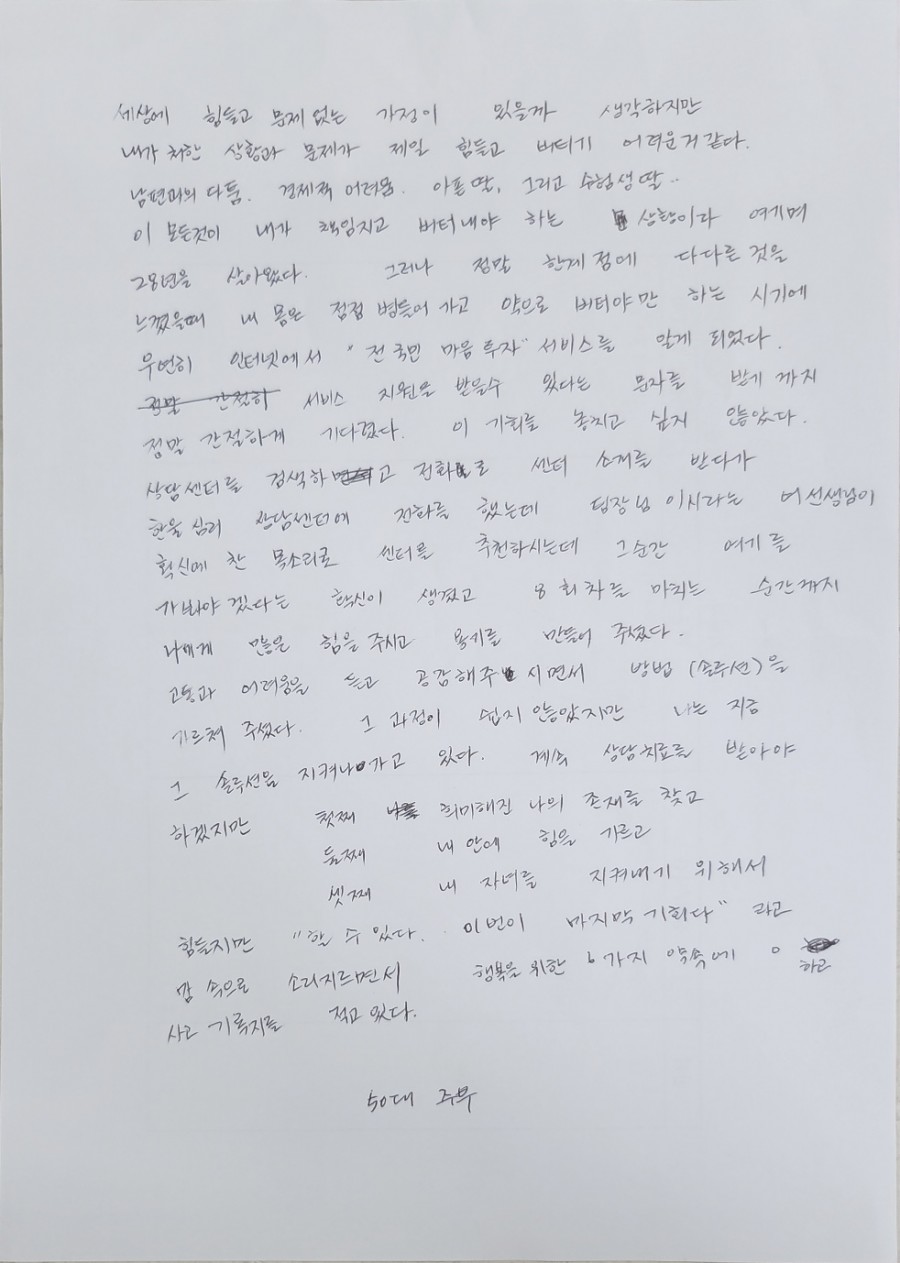 세상에 힘들고 문제 없는 가정이 있을까 생각하지만
내가 처한 상황과 문제가 제일 힘들고 버티기 어려운거 같다.
남편과의 다툼. 경제적 어려움. 아픈 딸, 그리고 수험생 딸..
이 모든것이 내가 책임지고 버텨내야 하는 상황이라 여기며
28년을 살아왔다. 그러나 정말 한계점에 다다른 것을
느꼈을때 내 몸은 점점 병들어 가고 약으로 버텨야만 하는 시기에
우연히 인터넷에서 "전국민 마음 투자" 서비스를 알게 되었다.
정말 간절히 서비스 지원을 받을수 있다는 문자를 받기 까지
정말 간절하게 기다렸다. 이 기회를 놓치고 싶지 않았다.
상담센터를 검색하고 전화로 센터 소개를 받다가
한울 심리 상담센터에 전화를 했는데 팀장님 이시라는 여선생님이
확신에 찬 목소리로 센터를 추천하시는데 그순간 여기를
가봐야 겠다는 확신이 생겼고 8회차를 마치는 순간까지
나에게 많은 힘을 주시고 용기를 만들어 주셨다.
고통과 어려움을 듣고 공감해주시면서 방법 (솔루션)을
가르쳐 주셨다. 그 과정이 쉽지 않았지만 나는 지금
그 솔루션을 지켜나가고 있다. 계속 상담치료를 받아야
하겠지만 첫째 희미해진 나의 존재를 찾고
둘째 내 안에 힘을 기르고
셋째 내 자녀를 지켜내기 위해서
힘들지만 "할 수 있다. 이번이 마지막 기회다" 라고
맘 속으로 소리지르면서 행복을 위한 6가지 약속에 ㅇ 하고
사고 기록지를 적고 있다.
50대 주부